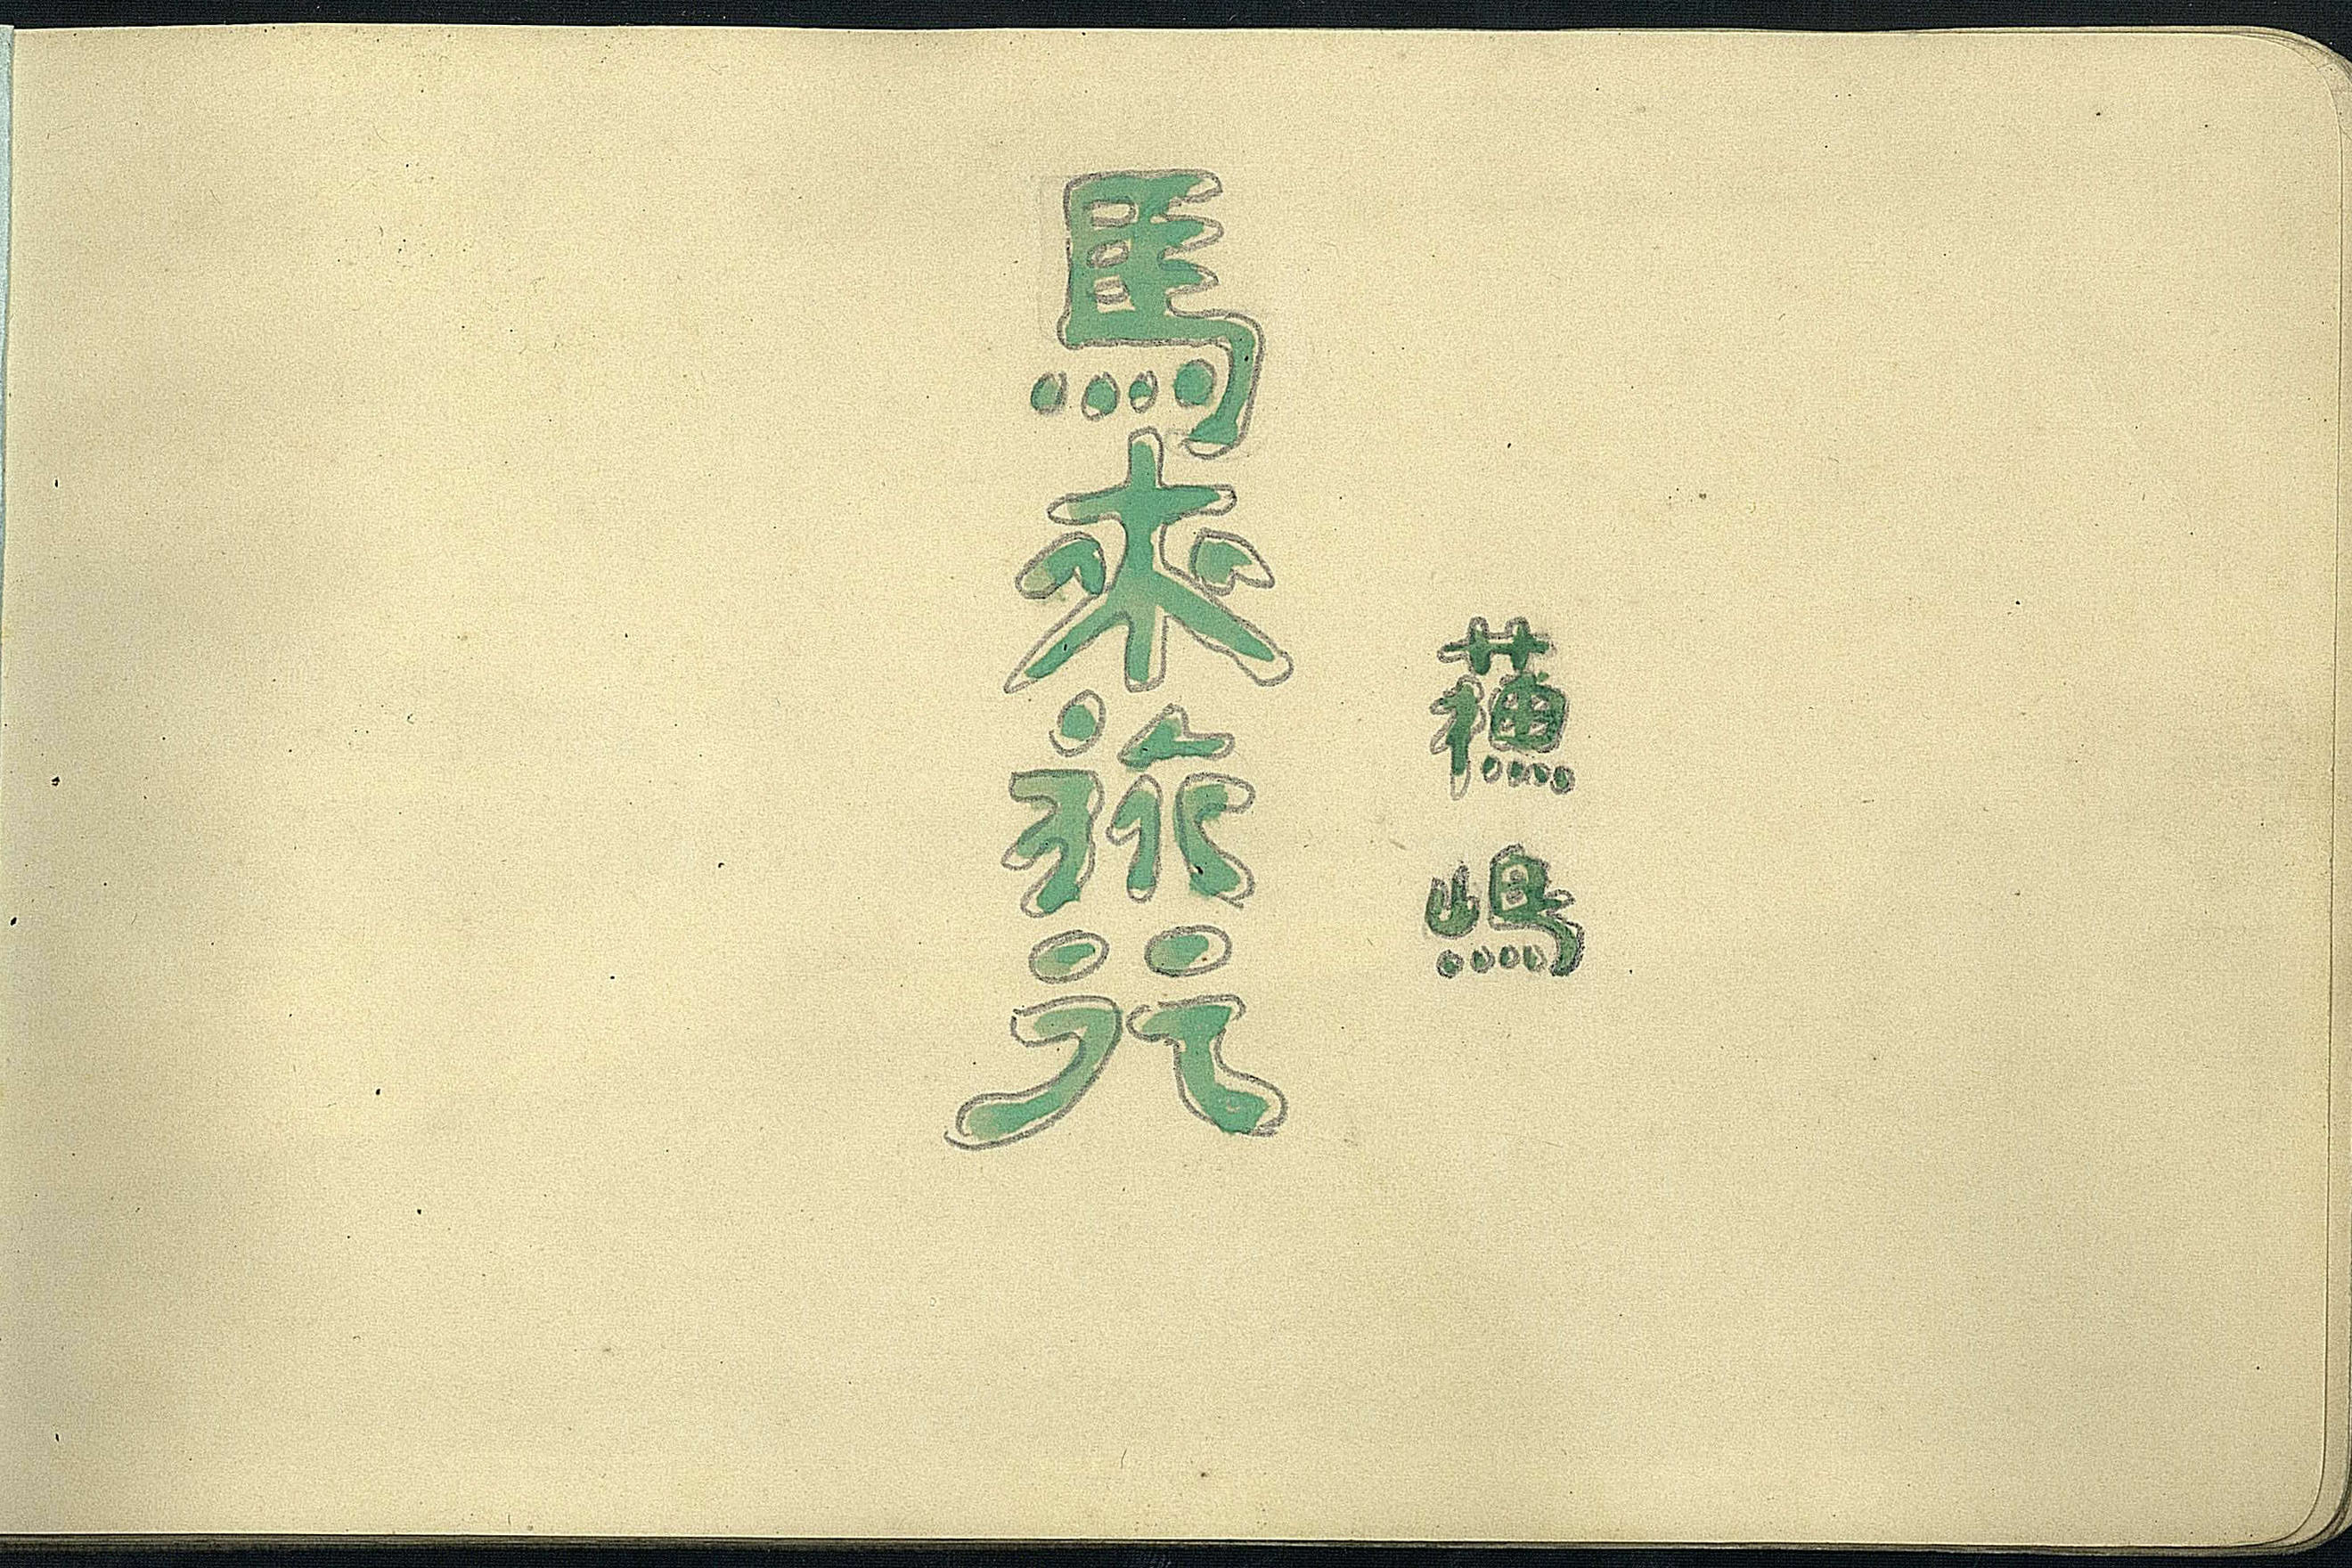 蘓嶋
馬來旅行